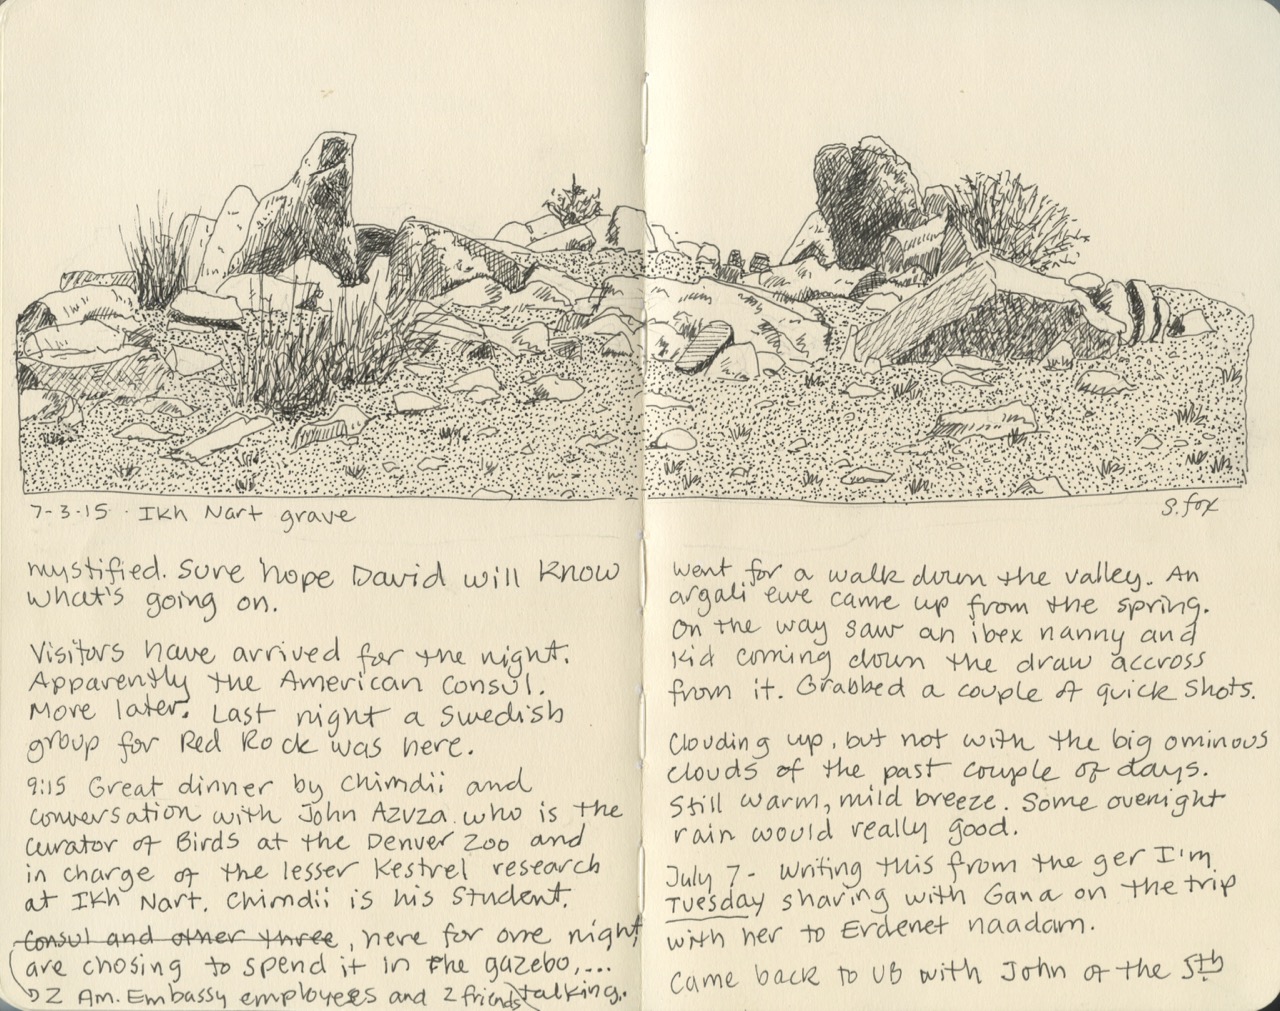 7-3-15 · Ikh Nart grave
S. fox
mystified. Sure hope David will know
what's going on.
Visitors have arrived for the night.
Apparently the American Consul.
More later. Last night a Swedish
group for Red Rock was here.
9:15 Great dinner by Chimdii and
conversation with John Azuza who is the
curator of Birds at the Denver Zoo and
in charge of the lesser Kestrel research
at Ikh Nart. Chimdii is his student.
Consul and other three, here for one night,
are chosing to spend it in the gazebo,...
2 Am. Embassy employees and 2 friends talking.
went for a walk down the valley. An
argali ewe came up from the spring.
On the way saw an ibex nanny and
kid coming down the draw accross
from it. Grabbed a couple of quick shots.
Clouding up, but not with the big ominous
clouds of the past couple of days.
Still warm, mild breeze. Some overnight
rain would really good.
July 7 - Writing this from the ger I'm
Tuesday sharing with Gana on the trip
with her to Erdenet naadam.
Came back to UB with John of the 5th